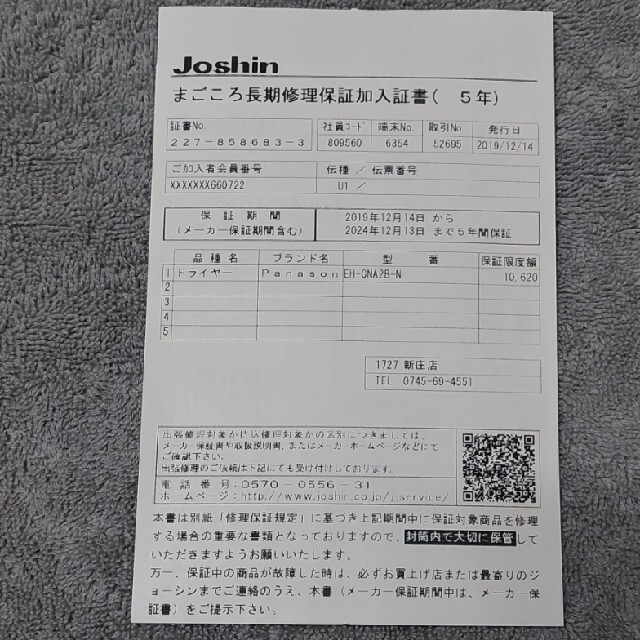 Joshin
まごころ長期修理保証加入証書( 5年)
証書No. 社員コード 端末No. 取引No 発行日
227-858683-3 809560 6354 52695 2019/12/14
ご加入者会員番号 伝種 / 伝票番号
XXXXXXX660722 U1 /
保証期間 2019年12月14日 から
(メーカー保証期間含む) 2024年12月13日 まで5年間保証
品種名 ブランド名 型番 保証限度額
1 ドライヤー Panason EH-CNA2B-N 10,620
2
3
4
5
1727 新庄店
TEL 0745-69-4551
出張修理対象か持込修理対象かの区別につきましては、
メーカー保証書や取扱説明書、またはメーカーホームページなどにて
ご確認下さい。
出張修理のご依頼は下記にても受け付けしております。
電話番号:0570-0556-31
ホームページ:http://www.joshin.co.jp/j_service/
本書は別紙「修理保証規定」に基づき上記期間中に保証対象商品を修理
する場合の重要な書類となっておりますので、封筒内で大切に保管して
いただきますようお願いいたします。
万一、保証中の商品が故障した時は、必ずお買上げ店または最寄りのジ
ョーシンまでご連絡のうえ、本書(メーカー保証期間中は、メーカー保
証書)をご提示下さい。